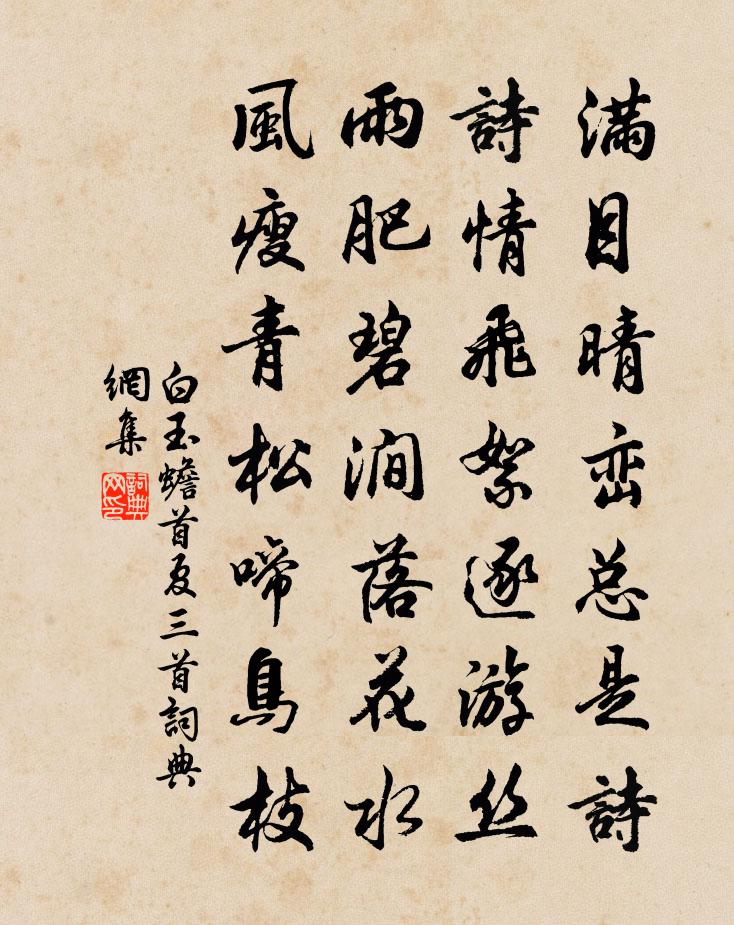 滿目晴峦总是詩
詩情飛絮逐游丝
雨肥碧澗落花水
風瘦青松啼鳥枝
白玉蟾首夏三首詞典
網集
詞典
网印